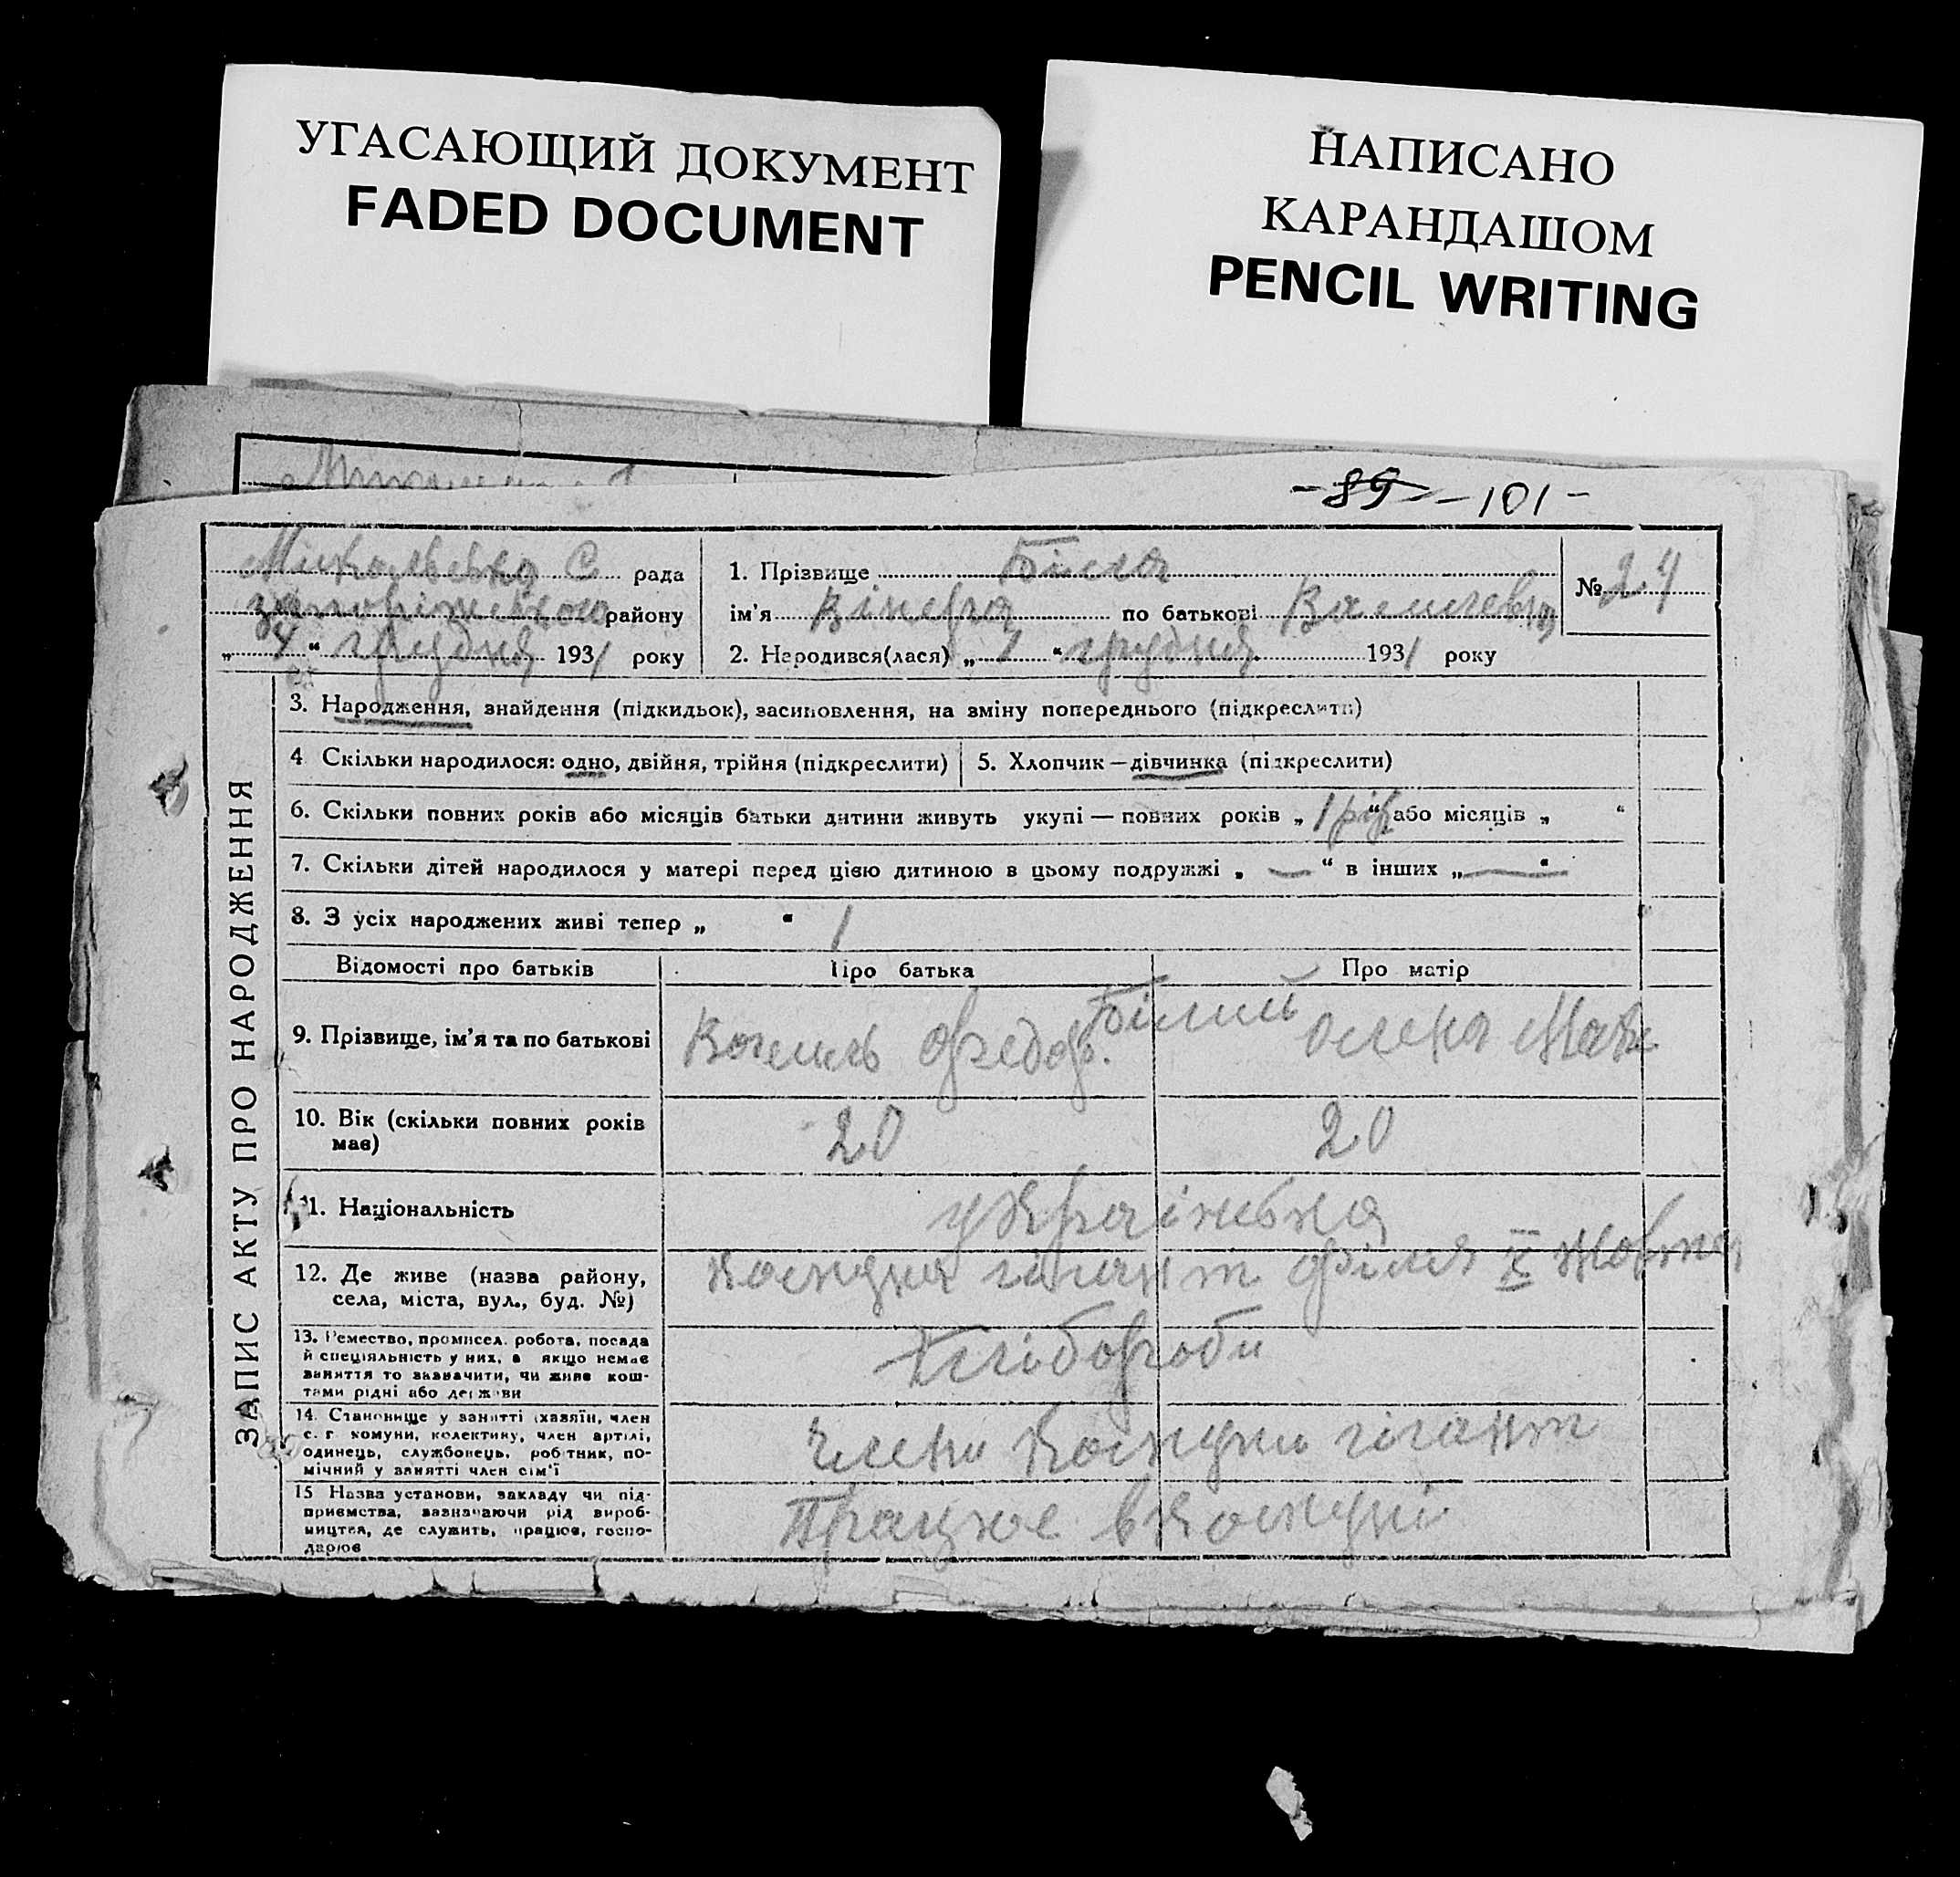 УГАСАЮЩИЙ ДОКУМЕНТ
FADED DOCUMENT
НАПИСАНО
КАРАНДАШОМ
PENCIL WRITING
-89- -101-
Микольська С. рада
запоріжського району
„4“ грудня 1931 року
1. Прізвище Біла
ім'я по батькові
2. Народився(лася) „1“ грудня 1931 року
№ 24
ЗАПИС АКТУ ПРО НАРОДЖЕННЯ
3. Народження, знайдення (підкидьок), засиновлення, на зміну попереднього (підкреслити)
4 Скільки народилося: одно, двійня, трійня (підкреслити)
5. Хлопчик — дівчинка (підкреслити)
6. Скільки повних років або місяців батьки дитини живуть укупі — повних років „1 рік“ або місяців „ “
7. Скільки дітей народилося у матері перед цією дитиною в цьому подружжі „—“ в інших „—“
8. З усіх народжених живі тепер „ “ 1
Відомості про батьків
Про батька
Про матір
9. Прізвище, ім'я та по батькові
Білий
Федор.
олена
10. Вік (скільки повних років
має)
20
20
11. Національність
українська
12. Де живе (назва району,
села, міста, вул., буд. №)
комуна гігант філія X Жовтня
13. Ремество, промисел. робота, посада
й спеціяльність у них, а якщо немає
заняття то зазначити, чи живе кош-
тами рідні або держави
Хлібороби
14. Становище у занятті (хазяїн, член
с. г. комуни, колективу, член артілі,
одинець, службовець, робітник, по-
мічний у занятті член сім'ї
члени комуни гігант
15 Назва установи, закладу чи під-
приємства, зазначаючи рід вироб-
ництва, де служить, працює, госпо-
дарює
Працює в комуні